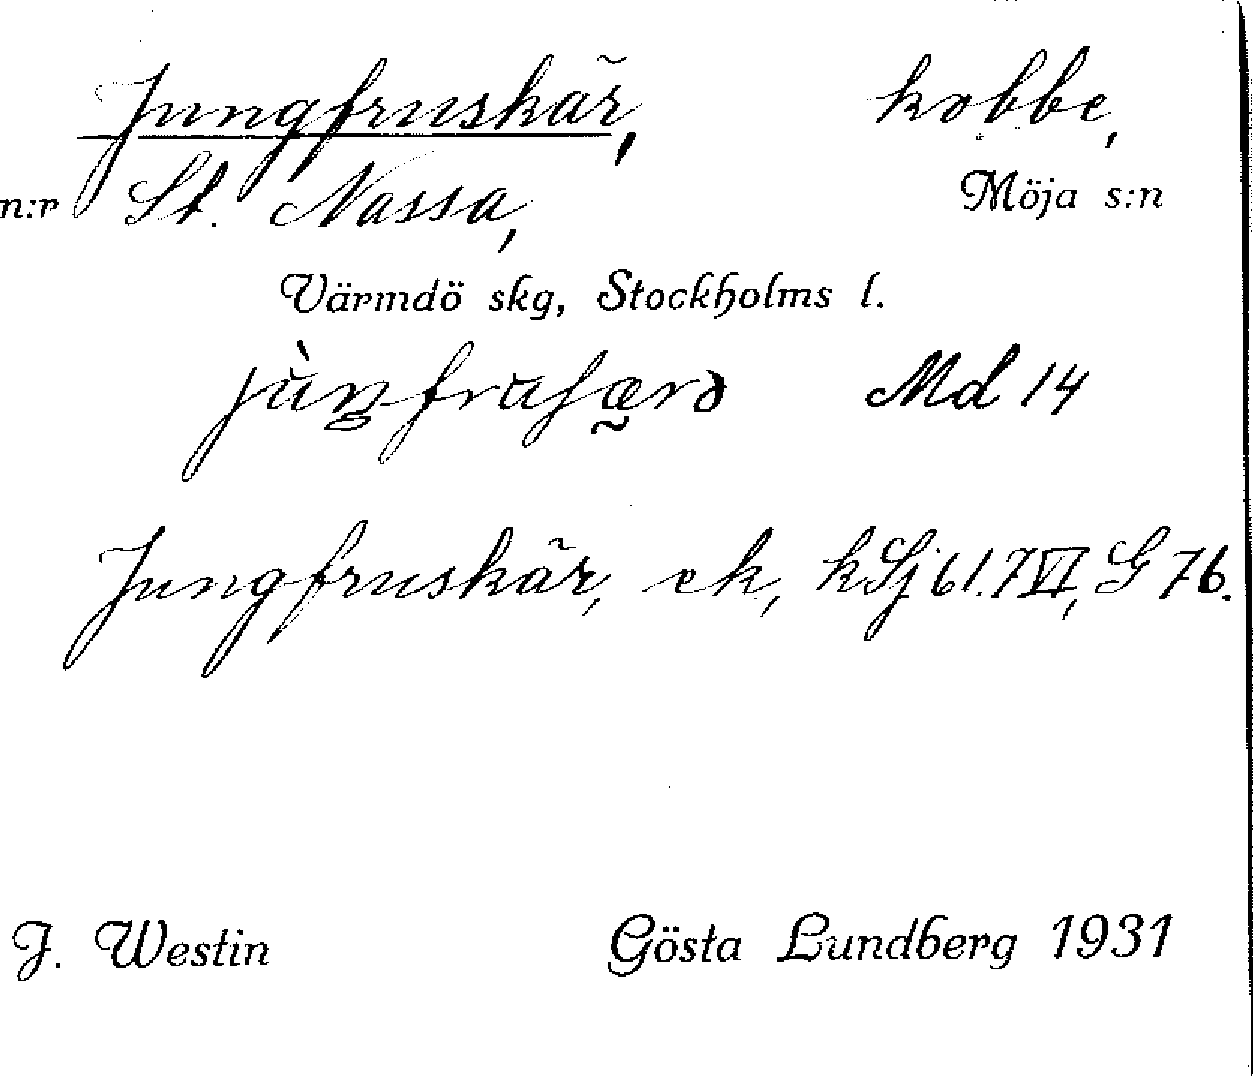 Jungfruskär, kobbe,
n:r St. Nassa, Möja s:n
Värmdö skg, Stockholms l.
Md 14
Jungfruskär, ek, kSj 61.7 VI, G 76.
J. Westin Gösta Lundberg 1931